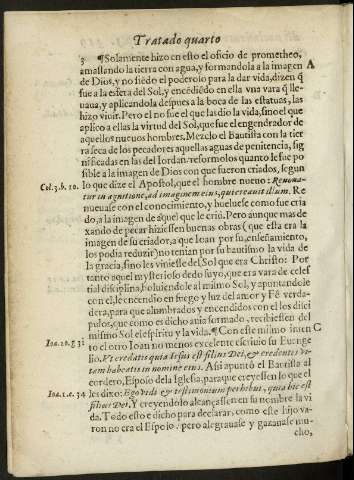 Tratado quarto
3 ¶Solamente hizo en esto el oficio de prometheo, A
amassando la tierra con agua, y formandola a la imagen
de Dios, y no siẽdo el poderoso para la dar vida, dizen q̃
fue a la esfera del Sol, y encẽdiẽdo en ella vna vara q̃ lle-
uaua, y aplicandola despues a la boca de las estatuas, las
hizo viuir. Pero el no fue el que las dio la vida, sino el que
aplico a ellas la virtud del Sol, que fue el engendrador de
aquellos nueuos hombres. Mezclo el Bautista con la tier
ra seca de los pecadores aquellas aguas de penitencia, sig
nificadas en las del Iordan: reformolos quanto le fue po
sible a la imagen de Dios con que fueron criados, segun
Col. 3. b. 10. lo que dize el Apostol, que el hombre nueuo: Renoua-
tur in agnitione, ad imaginem eius, qui creauit illum. Re
nueuase con el conocimiento, y bueluese como fue cria
do, a la imagen de aquel que le criò. Pero aunque mas de
xando de pecar hiziessen buenas obras (que esta era la
imagen de su criador, a que Ioan por su enseñamiento,
los podia reduzir) no tenian por su bautismo la vida de
la gracia, sino les viniesse del Sol que era Christo: Por
tanto aquel mysterioso dedo suyo, que era vara de celes
tial disciplina, boluiendole al mismo Sol, y apuntandole
con el, le encendio en fuego y luz del amor y Fè verda-
dera, para que alumbrados y encendidos con el los disci
pulos, que como es dicho auia formado, recibiessen del
mismo Sol el espiritu y la vida. ¶Con este mismo inten C
Ioa. 20. g. 31 to el otro Ioan no menos excelente escriuio su Euange
lio. Vt credatis quia Iesus est filius Dei, & credentes vi-
tam habeatis in nomine eius. Assi apuntò el Bautista al
cordero, Esposo de la Iglesia, para que creyessen lo que el
Ioa. 1. e. 34 les dixo: Ego vidi & testimonium perhibui, quia hic est
filius Dei. Y creyendolo alcançassen en su nombre la vi
da. Todo esto e dicho para declarar, como este hijo va-
ron no era el Esposo: pero alegrauase y gozauase mu-
cho,